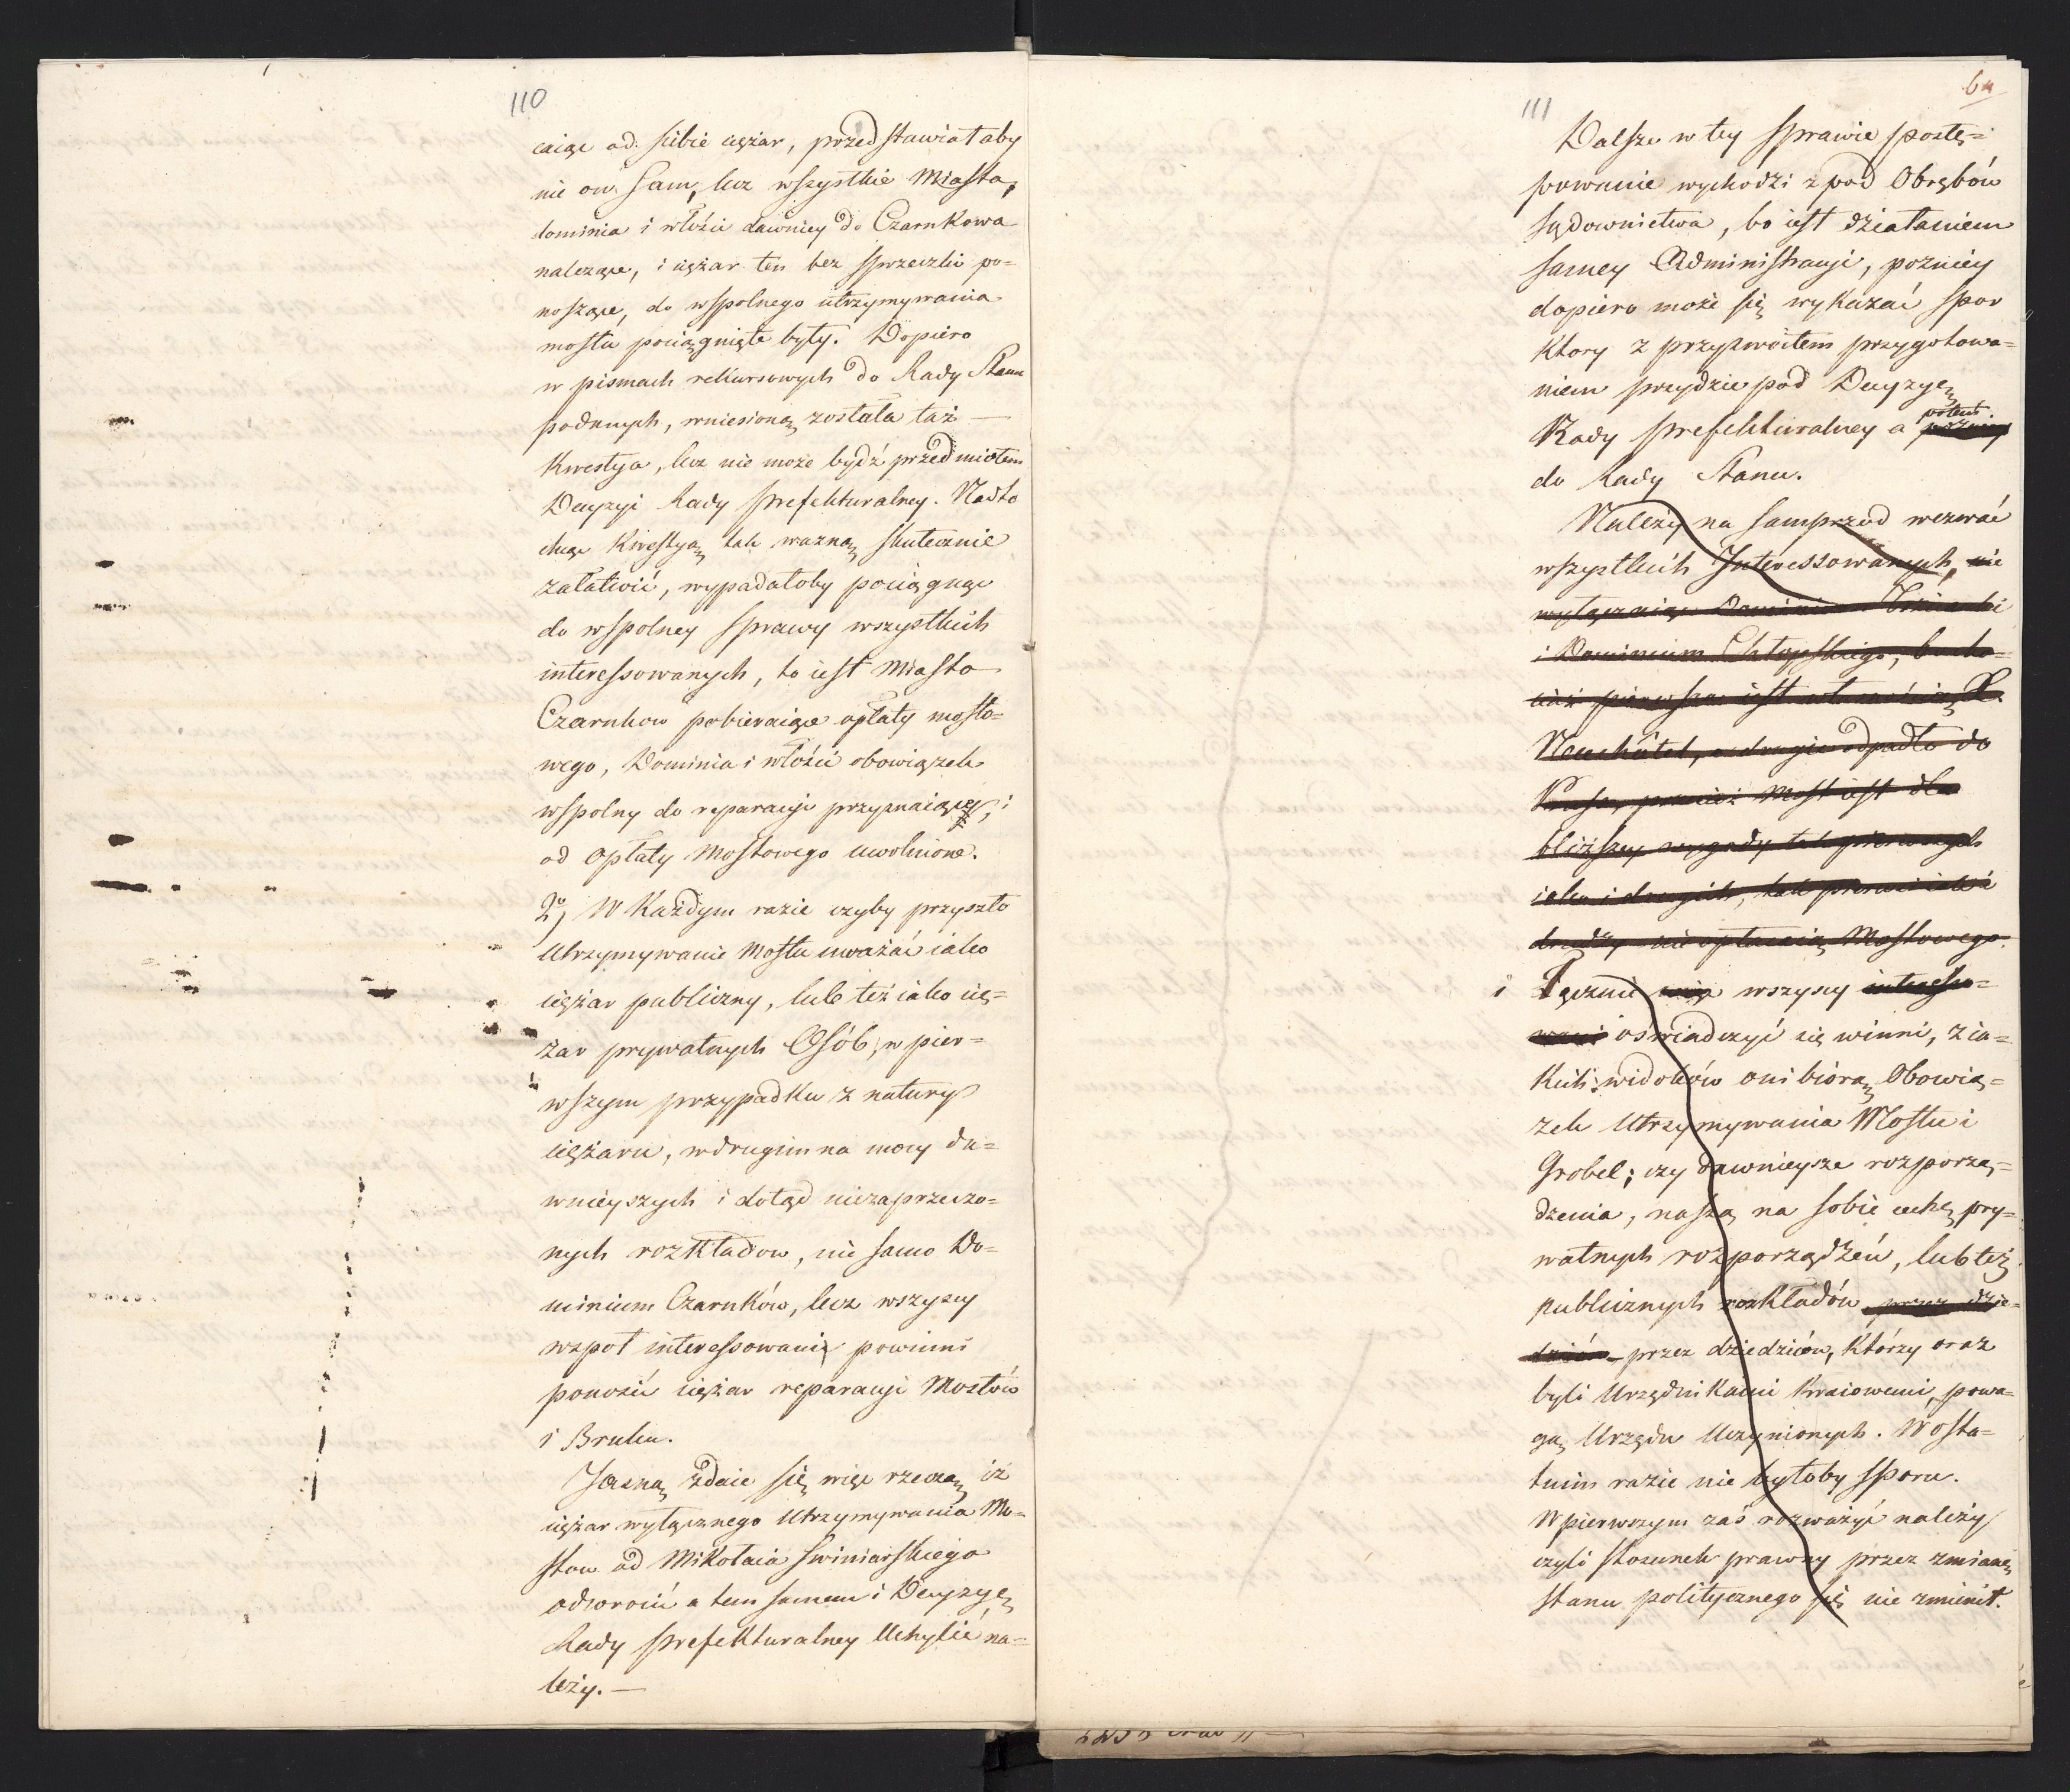 110
caiąc od siebie ciężar, przedstawiał aby
nie on sam, lecz wszystkie Miasta,
dominia i włości dawniey do Czarnkowa
należące, i ciężar ten bez sprzeczki po=
noszące, do wspolnego utrzymywania
mostu pociągnięte były. Dopiero
w pismach rekursowych do Rady Stanu
podanych, wniesioną została taż —
Kwestya, lecz nie może bydź przedmiotem
Decyzyi Rady Prefekturalney. Nadto
chcąc Kwestyą tak ważną skutecznie
załatwić, wypadałoby pociągnąc
do wspolney sprawy wszystkich
interessowanych, to iest Miasto
Czarnkow pobieraiące opłaty mosto=
wego, Dominia i włości obowiązek
wspolny do reparacyi przyznaiące, i
od opłaty Mostowego uwolnione.
2o, W Każdym razie czyby przyszło
Utrzymywanie Mostu uważać iako
ciężar publiczny, lub też iako cię=
żar prywatnych Osób, w pier=
wszym przypadku z natury
ciężaru, w drugim na mocy da=
wnieyszych i dotąd niezaprzeczo=
nych rozkładow, nie samo Do=
minium Czarnków, lecz wszyscy
wspoł interessowani powinni
ponosić ciężar reparacyi Mostów
i Bruku.
Jasną zdaie się więc rzeczą iż
ciężar wyłącznego Utrzymywania Mo=
stow od Mikołaia Swiniarskiego
odwrocić a tem samem i Decyzyę
Rady Prefekturalney Uchylić na=
leży. —
111
64
Dalsze w tey Sprawie postę=
powanie wychodzi z pod Obrębów
Sądownictwa, bo iest działaniem
samey Administracyi, pozniey
dopiero może się wykazać spor
Ktory z przyzwoitem przygotowa=
niem przydzie pod Decyzyę
potem
Rady Prefekturalney a pozniey
do Rady Stanu.
Należy na samprzod wezwać
wszystkich Interessowanych, nie
wyłączaiąc Dominium Trzcianki
i Dominium Chłopskiego, bo cho=
ciaż pierwsza iest własnością X.
Neuchâtel, a drugie odpadło do
Prus, przecież Most iest dla
bliższey wygody tak pierwszych
iako i drugich, tak pierwsi iak i
drudzy nie opłacaią Mostowego.
i Łącznie więc wszyscy interesso=
wani oświadczyć się winni, z ia=
Kich widoków oni biorą Obowią=
zek Utrzymywania Mostu i
Grobel; czy dawnieysze rozporzą=
dzenia, noszą na sobie cechę pry=
watnych rozporządzeń, lub też
publicznych rozkładów przez dzie=
dziców przez dziedziców, Którzy oraz
byli Urzędnikami Kraiowemi, powa=
gą Urzędu Uczynionych. W osta=
tnim razie nie byłoby sporu.
W pierwszym zaś rozważyć należy
czyli stosunek prawny przez zmianę
stanu politycznego się nie zmienił.